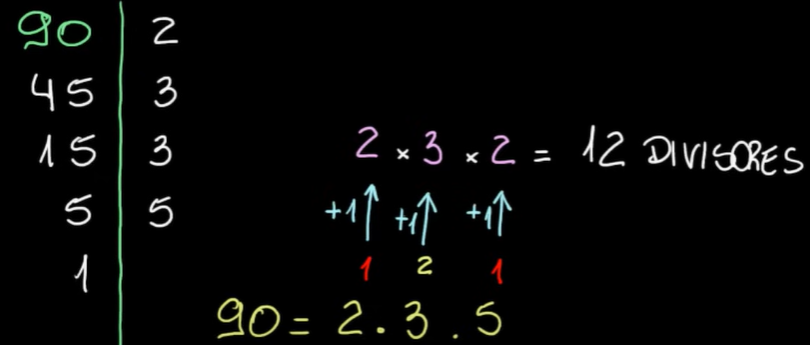 90 | 2
45 | 3
15 | 3
5 | 5
1
2 × 3 × 2 = 12 DIVISORES
+1↑ +1↑ +1↑
1 2 1
90 = 2 . 3 . 5